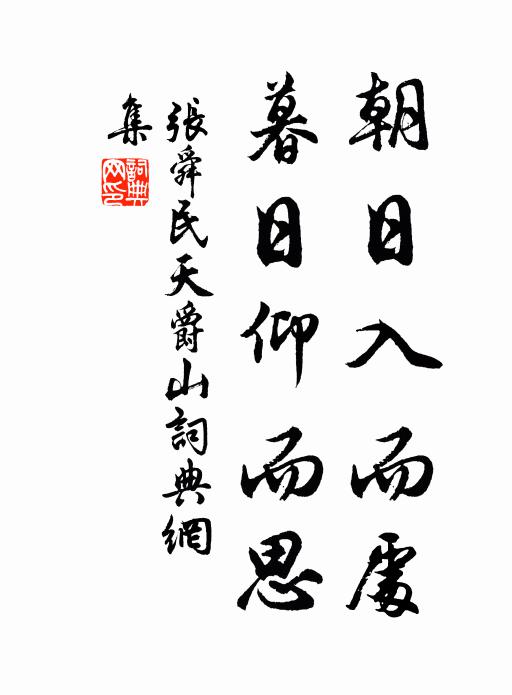 朝日入而處
暮日仰而思
張舜民天爵山詞典網
集
詞典網印